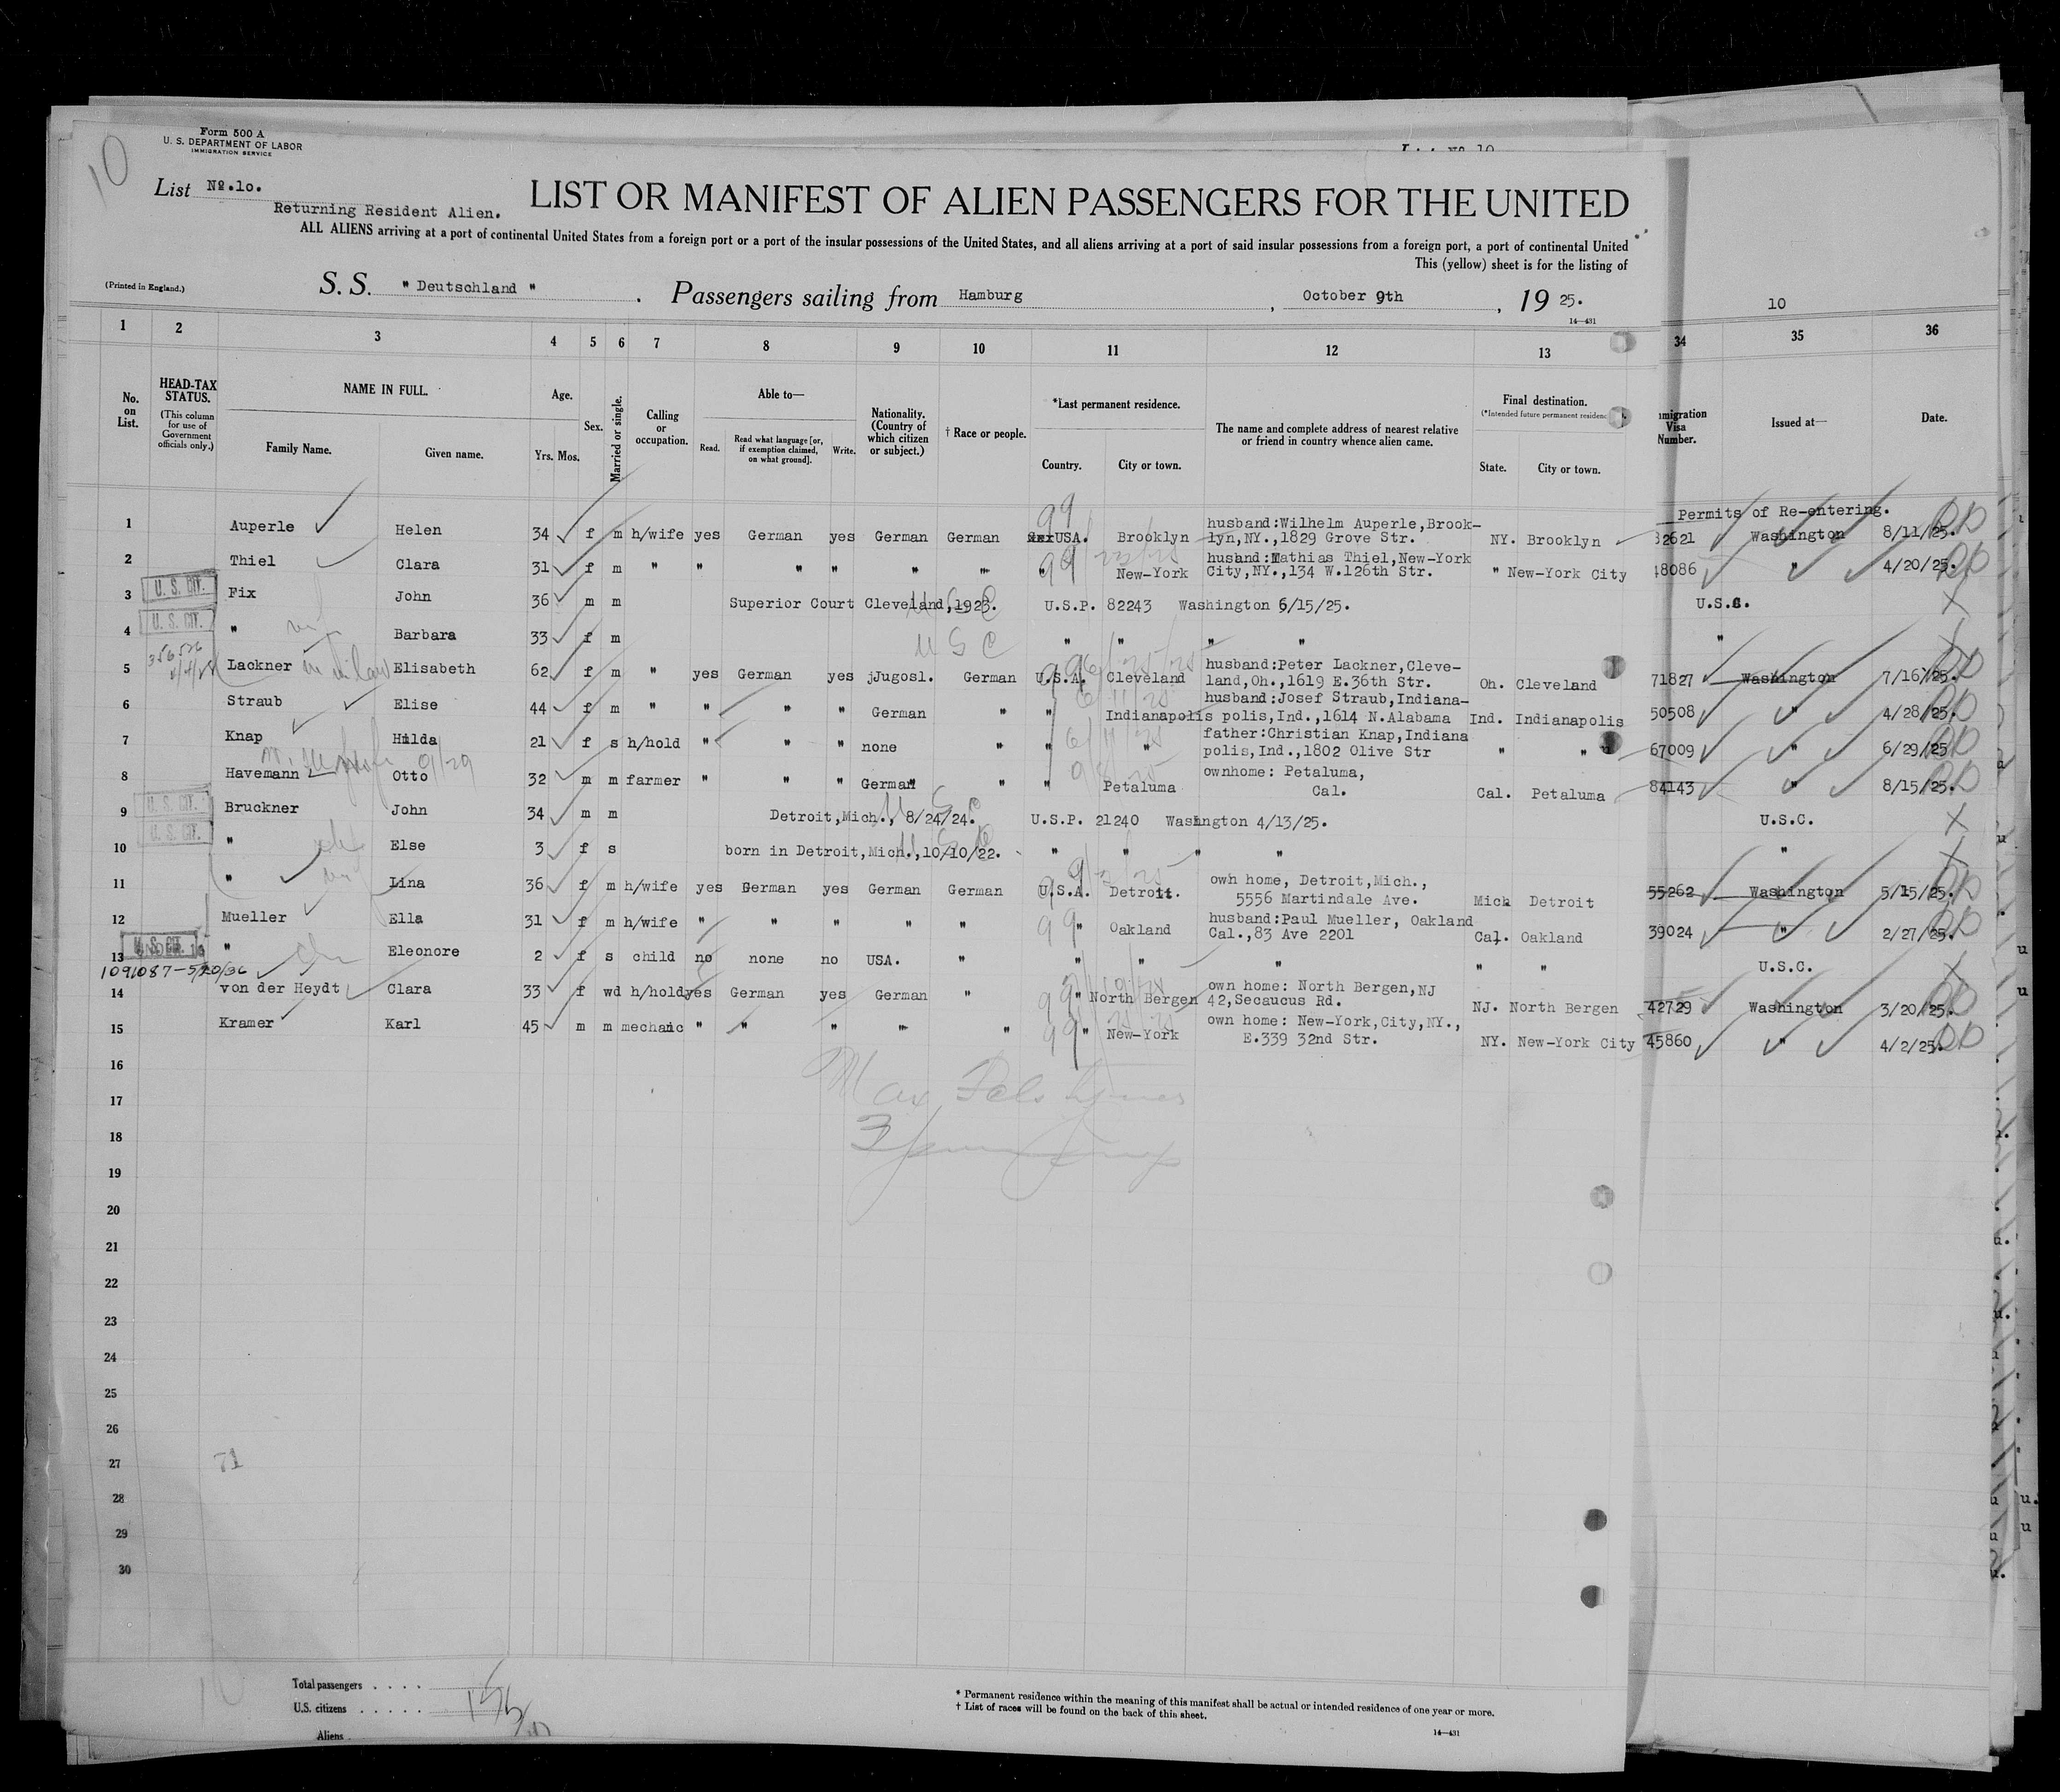 10
Form 500 A
U. S. DEPARTMENT OF LABOR
IMMIGRATION SERVICE
List Nº.1o.
Returning Resident Alien.
LIST OR MANIFEST OF ALIEN PASSENGERS FOR THE UNITED
ALL ALIENS arriving at a port of continental United States from a foreign port or a port of the insular possessions of the United States, and all aliens arriving at a port of said insular possessions from a foreign port, a port of continental United
This (yellow) sheet is for the listing of
(Printed in England.)
S. S. " Deutschland " . Passengers sailing from Hamburg , October 9th , 19 25.
14—431
10
1 2 3 4 5 6 7 8 9 10 11 12 13 34 35 36
No. on List.
HEAD-TAX STATUS.
(This column for use of Government officials only.)
NAME IN FULL.
Family Name. Given name.
Age.
Yrs. Mos.
Sex.
Married or single.
Calling or occupation.
Able to—
Read. Read what language [or, if exemption claimed, on what ground]. Write.
Nationality. (Country of which citizen or subject.)
† Race or people.
*Last permanent residence.
Country. City or town.
The name and complete address of nearest relative or friend in country whence alien came.
Final destination.
(*Intended future permanent residence
State. City or town.
Immigration Visa Number.
Issued at—
Date.
Permits of Re-entering.
1 Auperle Helen 34 f m h/wife yes German yes German German USA. Brooklyn husband:Wilhelm Auperle,Brook-
lyn,NY.,1829 Grove Str. NY. Brooklyn 82621 Washington 8/11/25.
2 Thiel Clara 31 f m " " " " " " " New-York husband:Mathias Thiel,New-York
City,NY.,134 W.126th Str. " New-York City 48086 " 4/20/25.
3 U. S. CIT. Fix John 36 m m Superior Court Cleveland,1923. U.S.P. 82243 Washington 6/15/25. U.S.C.
4 U. S. CIT. " Barbara 33 f m U S C " " " " "
5 Lackner Elisabeth 62 f m " yes German yes jJugosl. German U.S.A. Cleveland husband:Peter Lackner,Cleve-
land,Oh.,1619 E.36th Str. Oh. Cleveland 71827 Washington 7/16/25.
6 Straub Elise 44 f m " " " " German " " Indianapolis husband:Josef Straub,Indiana-
polis,Ind.,1614 N.Alabama Ind. Indianapolis 50508 " 4/28/25.
7 Knap Hilda 21 f s h/hold " " " none " " " father:Christian Knap,Indiana
polis,Ind.,1802 Olive Str " " 67009 " 6/29/25
8 Havemann Otto 32 m m farmer " " " German " " Petaluma ownhome: Petaluma,
Cal. Cal. Petaluma 84143 " 8/15/25.
9 U. S. CIT. Bruckner John 34 m m Detroit,Mich., 8/24/24. U.S.P. 21240 Washington 4/13/25. U.S.C.
10 U. S. CIT. " Else 3 f s born in Detroit,Mich.,10/10/22. " " " " "
11 " Lina 36 f m h/wife yes German yes German German U.S.A. Detroit. own home, Detroit,Mich.,
5556 Martindale Ave. Mich Detroit 55262 Washington 5/15/25.
12 Mueller Ella 31 f m h/wife " " " " " " Oakland husband:Paul Mueller, Oakland
Cal.,83 Ave 2201 Cal. Oakland 39024 " 2/27/25.
13 U. S. CIT. " Eleonore 2 f s child no none no USA. " " " " " " U.S.C.
1091087-5/20/36
14 von der Heydt Clara 33 f wd h/hold yes German yes German " " North Bergen own home: North Bergen,NJ
42,Secaucus Rd. NJ. North Bergen 42729 Washington 3/20/25.
15 Kramer Karl 45 m m mechanic " " " " " " New-York own home: New-York,City,NY.,
E.339 32nd Str. NY. New-York City 45860 " 4/2/25.
16
17
18
19
20
21
22
23
24
25
26
27 71
28
29
30
Total passengers . . . .
U.S. citizens . . . . .
Aliens
* Permanent residence within the meaning of this manifest shall be actual or intended residence of one year or more.
† List of races will be found on the back of this sheet.
14—431